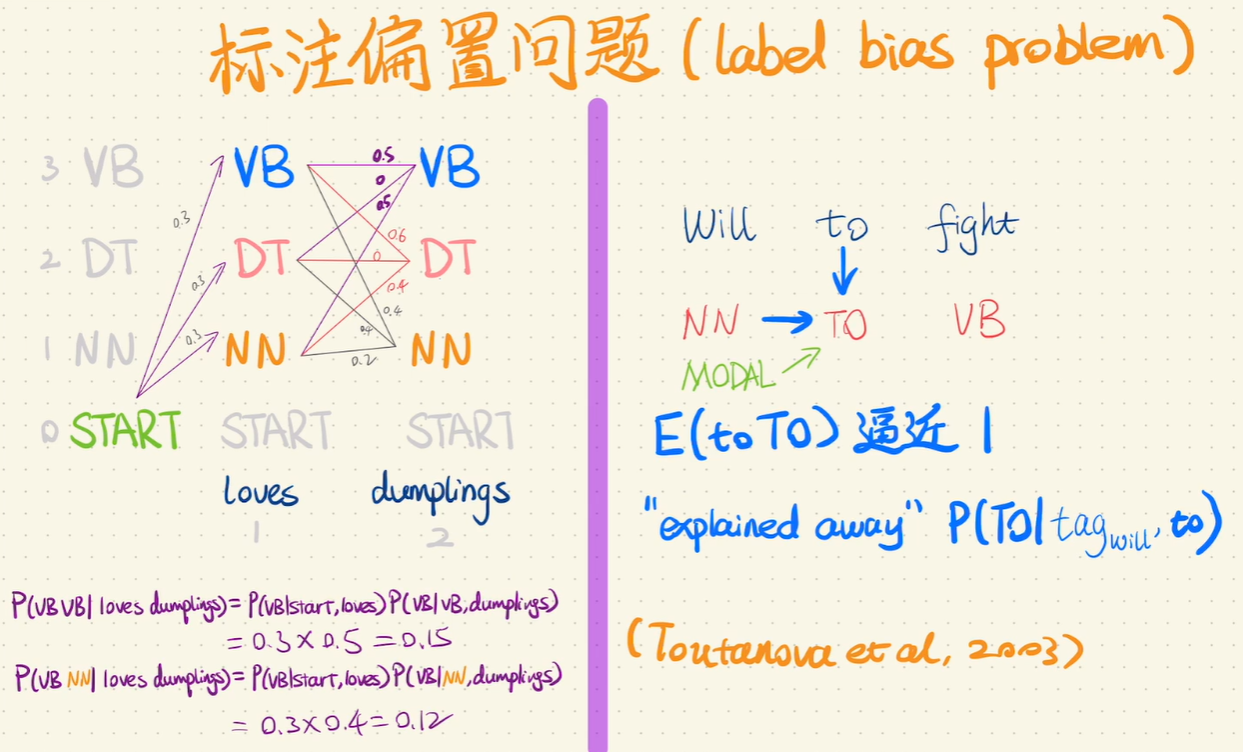 标注偏置问题 (label bias problem)
3 VB VB VB
2 DT DT DT
1 NN NN NN
0 START START START
0.3
0.3
0.3
0.5
0
0.5
0.6
0
0.4
0.4
0.2
loves dumplings
1 2
P(VB VB| loves dumplings) = P(VB|start, loves) P(VB|VB, dumplings)
= 0.3 × 0.5 = 0.15
P(VB NN| loves dumplings) = P(VB|start, loves) P(VB|NN, dumplings)
= 0.3 × 0.4 = 0.12
Will to fight
NN TO VB
MODAL
E(to TO) 逼近 1
"explained away" P(TO| tag will, to)
(Toutanova et al, 2003)